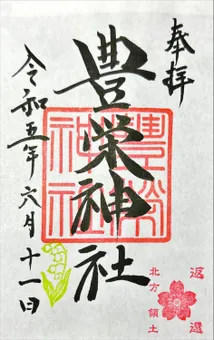 奉拝
豊栄神社
令和五年六月十一日
豊榮神社
返還
北方領土